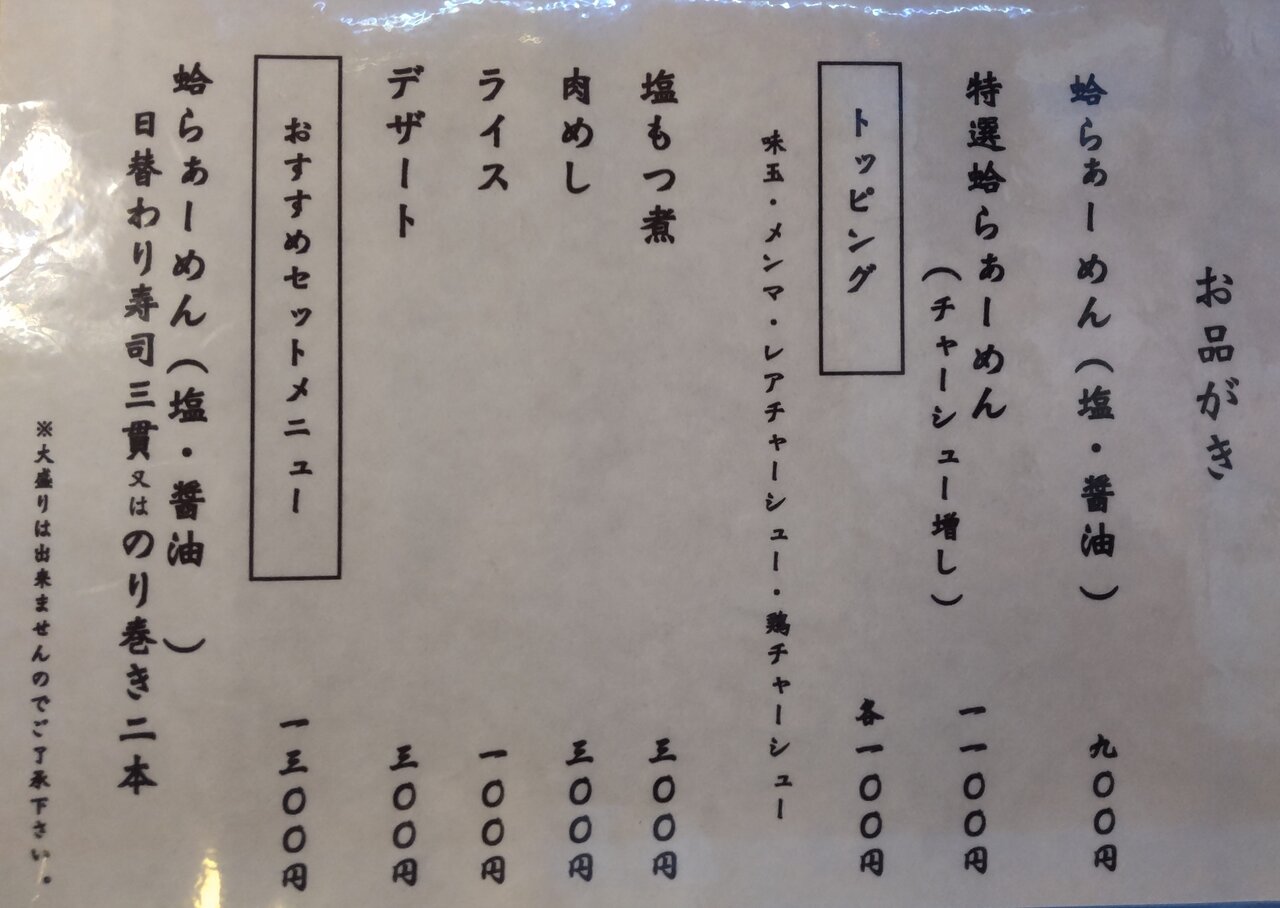 お品がき
蛤らぁーめん（塩・醤油）
九〇〇円
特選蛤らぁーめん
（チャーシュー増し）
一一〇〇円
トッピング
各一〇〇円
味玉・メンマ・レアチャーシュー・鶏チャーシュー
塩もつ煮
三〇〇円
肉めし
三〇〇円
ライス
一〇〇円
デザート
三〇〇円
おすすめセットメニュー
一三〇〇円
蛤らぁーめん（塩・醤油）
日替わり寿司三貫又はのり巻き二本
※大盛りは出来ませんのでご了承下さい。